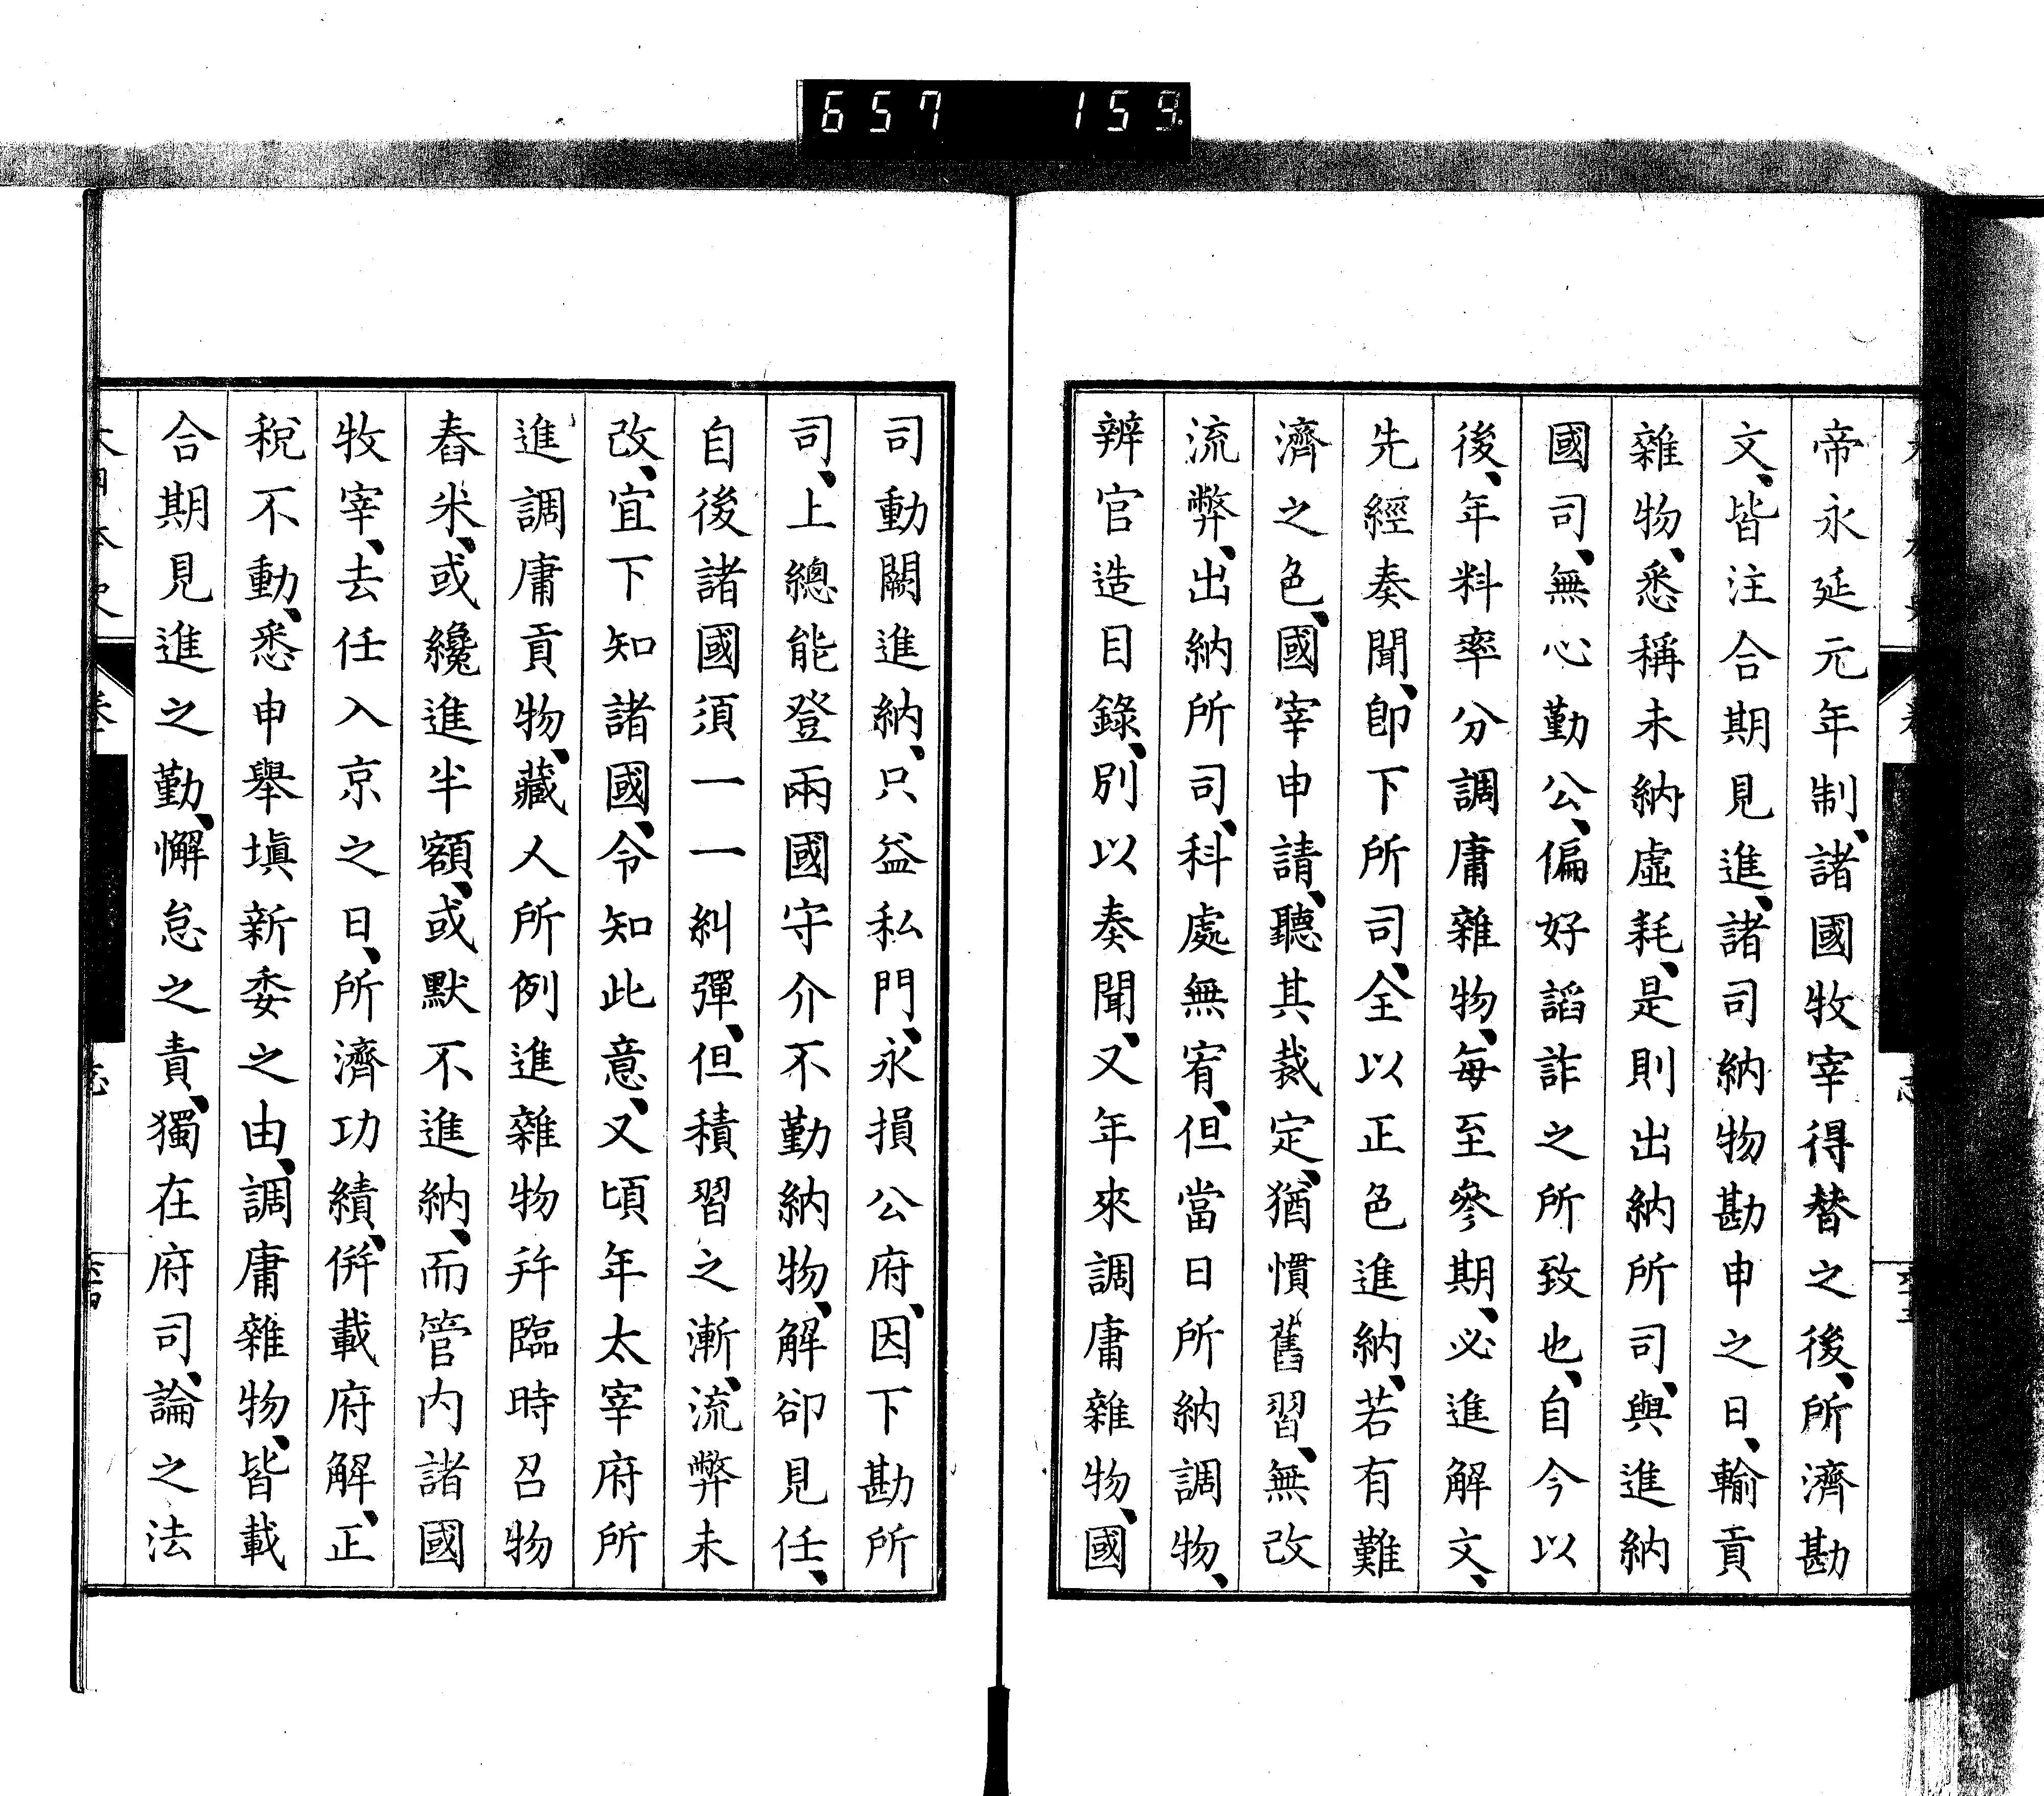 657 159
帝永延元年制、諸國牧宰得替之後、所濟勘
文、皆注合期見進、諸司納物勘申之日、輸貢
雜物、悉稱未納虛耗、是則出納所司、與進納
國司、無心勤公、偏好謟詐之所致也、自今以
後、年料率分調庸雜物、每至參期、必進解文、
先經奏聞、卽下所司、全以正色進納、若有難
濟之色、國宰申請、聽其裁定、猶慣舊習、無改
流弊、出納所司、科處無宥、但當日所納調物、
辨官造目錄、別以奏聞、又年來調庸雜物、國
司動闕進納、只益私門、永損公府、因下勘所
司、上總能登兩國守介不勤納物、解卻見任、
自後諸國須一一糾彈、但積習之漸、流弊未
改、宜下知諸國、令知此意、又頃年太宰府所
進調庸貢物、藏人所例進雜物幷臨時召物
舂米、或纔進半額、或默不進納、而管內諸國
牧宰、去任入京之日、所濟功績、併載府解、正
稅不動、悉申舉塡新委之由、調庸雜物、皆載
合期見進之勤、懈怠之責、獨在府司、論之法